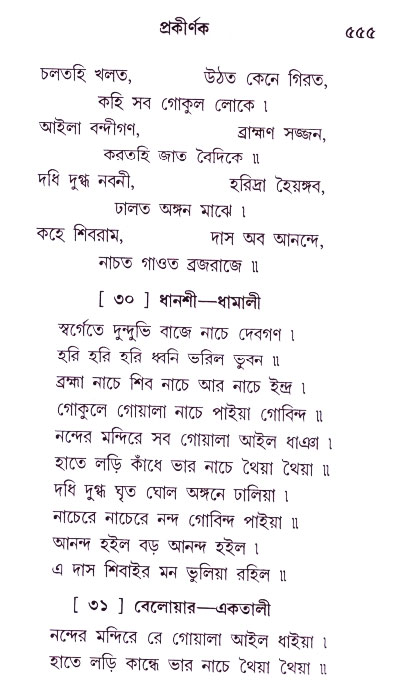 প্রকীর্ণক ৫৫৫
চলতহি খলত, উঠত কেনে গিরত,
কহি সব গোকুল লোকে ৷
আইলা বন্দীগণ, ব্রাহ্মণ সজ্জন,
করতহি জাত বৈদিকে ৷৷
দধি দুগ্ধ নবনী, হরিদ্রা হৈয়ঙ্গব,
ঢালত অঙ্গন মাঝে ৷
কহে শিবরাম, দাস অব আনন্দে,
নাচত গাওত ব্রজরাজে ৷৷
[ ৩০ ] ধানশী—ধামালী
স্বর্গেতে দুন্দুভি বাজে নাচে দেবগণ ৷
হরি হরি হরি ধ্বনি ভরিল ভুবন ৷৷
ব্রহ্মা নাচে শিব নাচে আর নাচে ইন্দ্র ৷
গোকুলে গোয়ালা নাচে পাইয়া গোবিন্দ ৷৷
নন্দের মন্দিরে সব গোয়ালা আইল ধাঞা ৷
হাতে লড়ি কাঁধে ভার নাচে থৈয়া থৈয়া ৷৷
দধি দুগ্ধ ঘৃত ঘোল অঙ্গনে ঢালিয়া ৷
নাচেরে নাচেরে নন্দ গোবিন্দ পাইয়া ৷৷
আনন্দ হইল বড় আনন্দ হইল ৷
এ দাস শিবাইর মন ভুলিয়া রহিল ৷৷
[ ৩১ ] বেলোয়ার—একতালী
নন্দের মন্দিরে রে গোয়ালা আইল ধাইয়া ৷
হাতে লড়ি কান্ধে ভার নাচে থৈয়া থৈয়া ৷৷